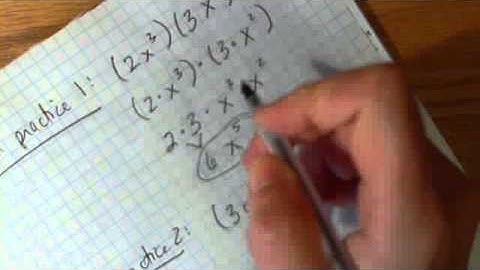 practice 1: (2x³)(3x
(2·x³)·(3·x²)
2·3·x³ x²
6x⁵
practice 2: (3·